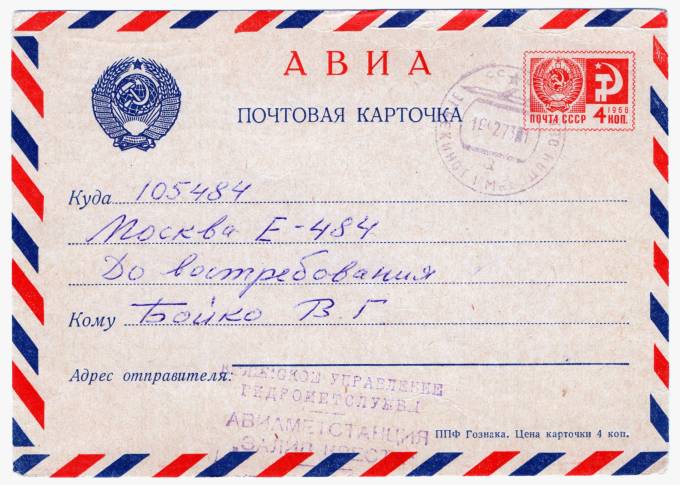 АВИА
ПОЧТОВАЯ КАРТОЧКА
1966
ПОЧТА СССР 4 КОП.
Куда 105484
Москва Е-484
До востребования
Кому Бойко В. Г
Адрес отправителя:
УПРАВЛЕНИЕ
АВИАМЕТСТАНЦИЯ
"ЗАЛИВ
ППФ Гознака. Цена карточки 4 коп.